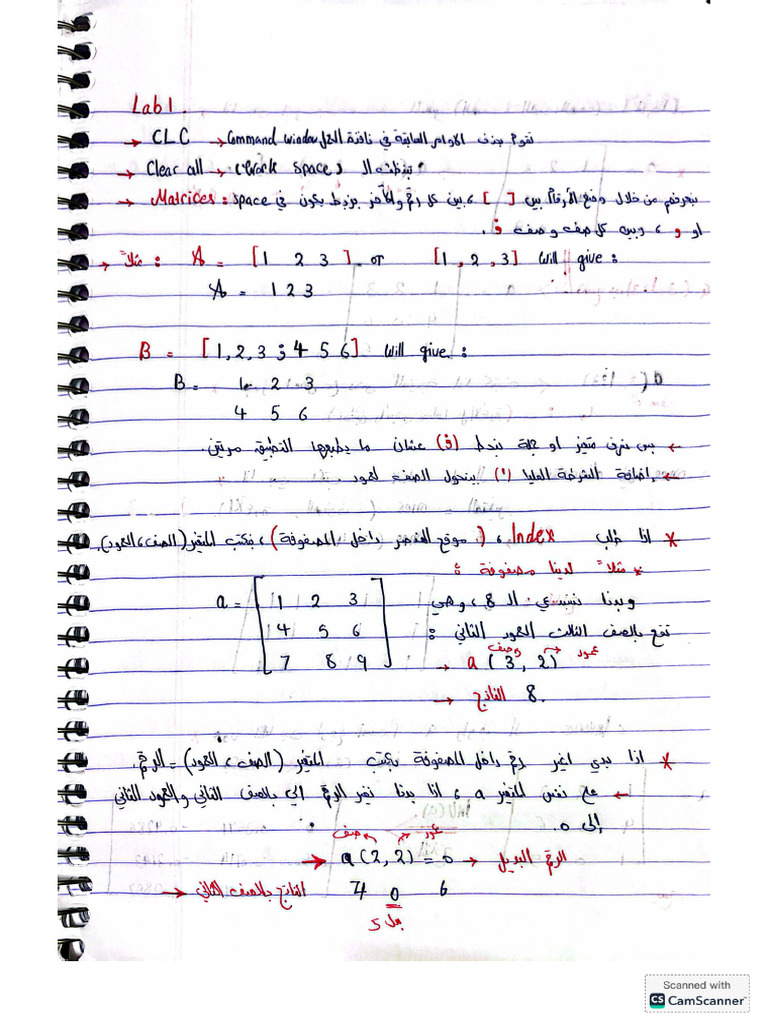 Lab 1.
→ CLC → Command window نقوم بحذف الأوامر السابقة في نافذة الـ
→ Clear all → Work space بتنظف الـ :
→ Matrices : space بنعرفهم من خلال وضع الأرقام بين [ ] ، بين كل رقم والآخر بربط يكون في
او و ، وبين كل صف وصف ف .
→ مثلاً : A = [1 2 3] or [1, 2, 3] Will give :
A = 1 2 3
B = [1, 2, 3 ; 4 5 6] Will give :
B = 1 2 3
4 5 6
← بس نعرف متغير او جملة بنحط (ف) عشان ما يطبعها التطبيق مرتين.
← إضافة الشرطة العليا (') بتحول الصف لعمود .
* اذا طلب Index ، ( موقع العنصر داخل المصفوفة ) ، بكتب المتغير (الصف ، العمود).
* مثلاً لدينا مصفوفة :
a = [ 1 2 3 وبدنا نستدعي الـ 8 ، وهي
4 5 6 تقع بالصف الثالث العمود الثاني :
7 8 9 ] → a (3, 2) صف عمود
→ الناتج 8.
* اذا بدي اغير رقم داخل المصفوفة بكتب المتغير (الصف ، العمود) = الرقم.
← مع نفس المتغير a ، اذا بدنا نغير الرقم الي بالصف الثاني والعمود الثاني
إلى 0.
صف عمود
→ a (2, 2) = 0 → الرقم البديل
الناتج بالصف الثاني → 4 0 6
بدل 5
Scanned with
CS CamScanner